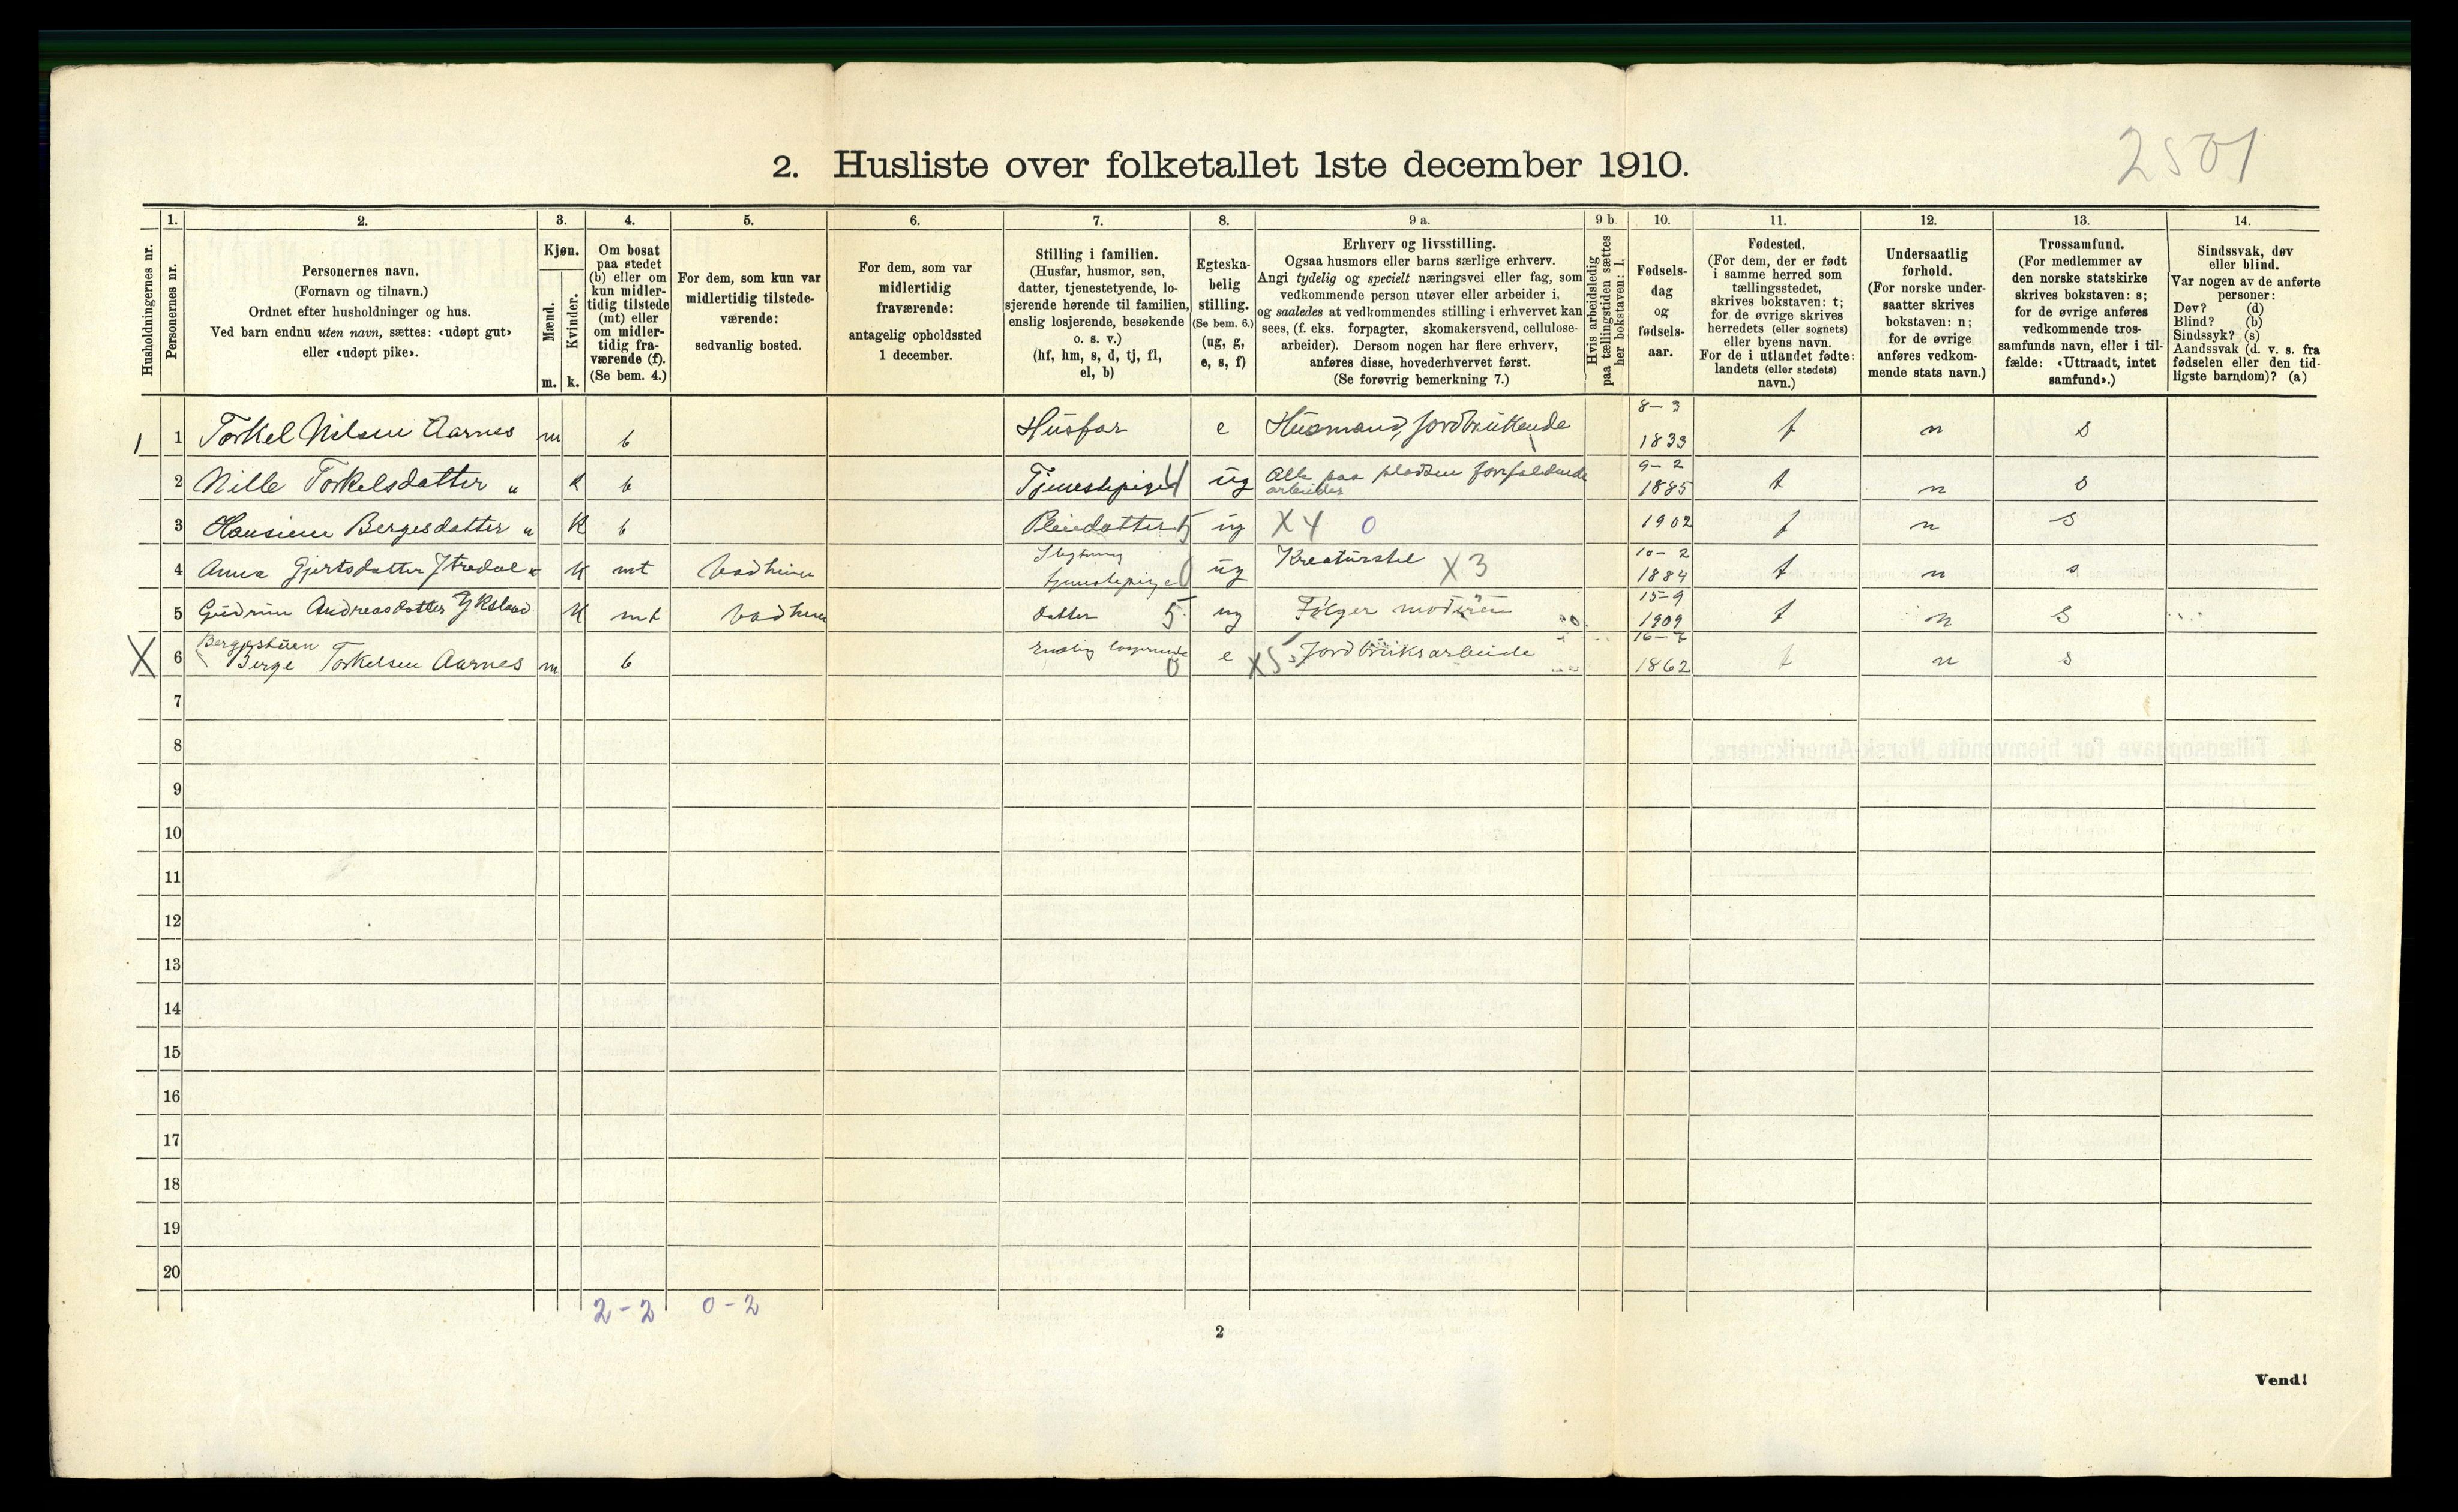 2501
2. Husliste over folketallet 1ste december 1910.
Husholdningernes nr.
1.
Personernes nr.
2.
Personernes navn.
(Fornavn og tilnavn.)
Ordnet efter husholdninger og hus.
Ved barn endnu uten navn, sættes: «udøpt gut»
eller «udøpt pike».
3.
Kjøn.
Mænd.
Kvinder.
m. k.
4.
Om bosat
paa stedet
(b) eller om
kun midler-
tidig tilstede
(mt) eller
om midler-
tidig fra-
værende (f).
(Se bem. 4.)
5.
For dem, som kun var
midlertidig tilstede-
værende:
sedvanlig bosted.
6.
For dem, som var
midlertidig
fraværende:
antagelig opholdssted
1 december.
7.
Stilling i familien.
(Husfar, husmor, søn,
datter, tjenestetyende, lo-
sjerende hørende til familien,
enslig losjerende, besøkende
o. s. v.)
(hf, hm, s, d, tj, fl,
el, b)
8.
Egteska-
belig
stilling.
(Se bem. 6.)
(ug, g,
e, s, f)
9 a.
Erhverv og livsstilling.
Ogsaa husmors eller barns særlige erhverv.
Angi tydelig og specielt næringsvei eller fag, som
vedkommende person utøver eller arbeider i,
og saaledes at vedkommendes stilling i erhvervet kan
sees, (f. eks. forpagter, skomakersvend, cellulose-
arbeider). Dersom nogen har flere erhverv,
anføres disse, hovederhvervet først.
(Se forøvrig bemerkning 7.)
9 b.
Hvis arbeidsledig
paa tællingstiden sættes
her bokstaven: l.
10.
Fødsels-
dag
og
fødsels-
aar.
11.
Fødested.
(For dem, der er født
i samme herred som
tællingsstedet,
skrives bokstaven: t;
for de øvrige skrives
herredets (eller sognets)
eller byens navn.
For de i utlandet fødte:
landets (eller stedets)
navn.)
12.
Undersaatlig
forhold.
(For norske under-
saatter skrives
bokstaven: n;
for de øvrige
anføres vedkom-
mende stats navn.)
13.
Trossamfund.
(For medlemmer av
den norske statskirke
skrives bokstaven: s;
for de øvrige anføres
vedkommende tros-
samfunds navn, eller i til-
fælde: «Uttraadt, intet
samfund».)
14.
Sindssvak, døv
eller blind.
Var nogen av de anførte
personer:
Døv? (d)
Blind? (b)
Sindssyk? (s)
Aandssvak (d. v. s. fra
fødselen eller den tid-
ligste barndom)? (a)
1 1 Torkel Nilsen Aarnes m b Husfar e Husmand, Jordbrukende 8-3 1833 t n s
2 Nille Torkelsdatter " k b Tjenestepige ug Alle paa pladsen forefaldende arbeider 9-2 1885 t n s
3 Hansine Bergesdatter " K b Pleiedatter 5 ug X4 0 1902 t n s
4 Anna Gjertsdatter K mt tjenestepige 0 ug Kreaturstel X3 10-2 1884 t n s
5 Gudrun Andreasdatter K mt datter 5 ug Følger moderen 15-9 1909 t n s
X 6 Bergestuen
Berge Torkelsen Aarnes m b Enslig losjerende 0 e X5 Jordbruksarbeide 16-7 1862 t n s
7
8
9
10
11
12
13
14
15
16
17
18
19
20
2-2 0-2
2
Vend!